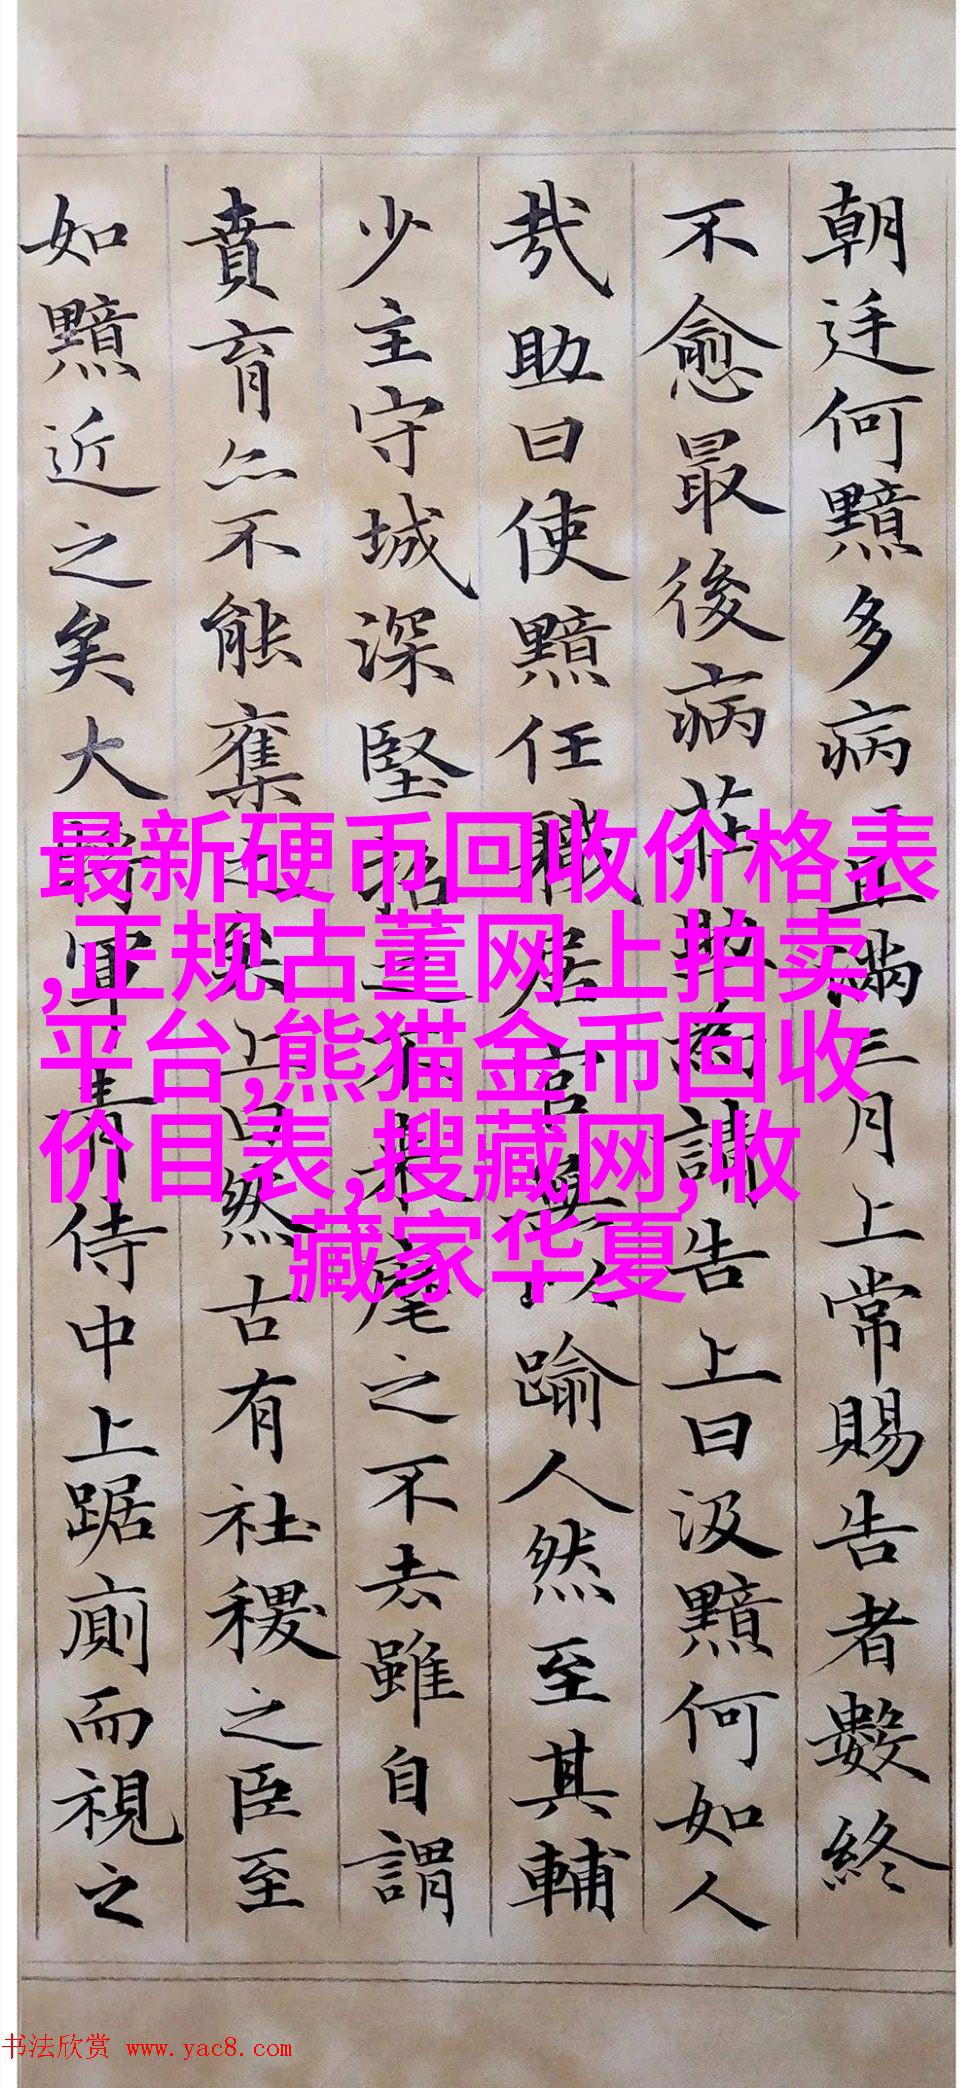 朝廷何黯多病且滿三月上常賜告者數終
不愈最後病莊助為請告上曰汲黯何如人
哉助曰使黯任職居官無以踰人然至其輔
少主守城深堅招之不來麾之不去雖自謂
賁育亦不能奪之矣上曰然古有社稷之臣至
如黯近之矣大將軍青侍中上踞廁而視之
最新硬币回收价格表
,正规古董网上拍卖
平台,熊猫金币回收
价目表,搜藏网,收
藏家华夏
书法欣赏 www.yac8.com